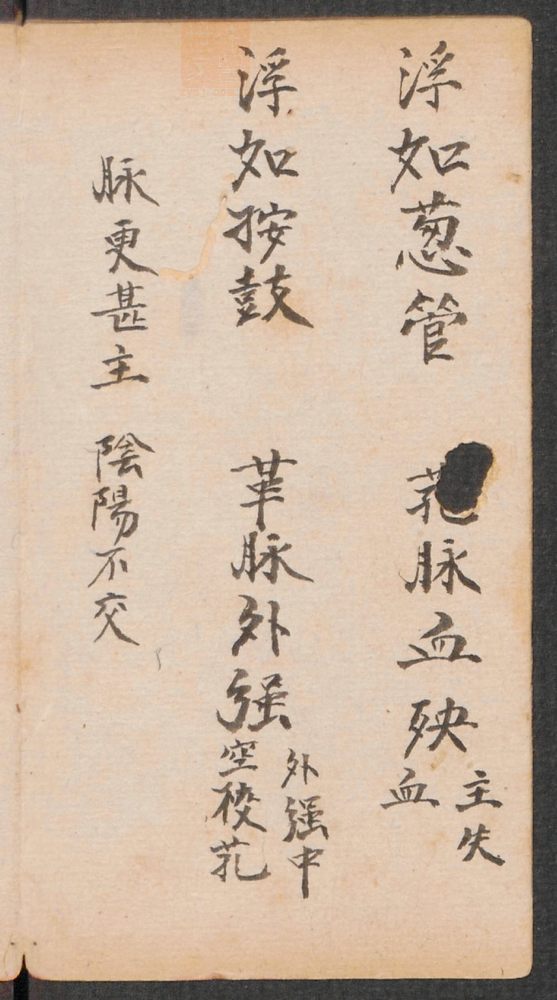 浮如葱管
芤脉血殃主失血
浮如按鼓
革脉外强外强中空校芤
脉更甚主
陰陽不交